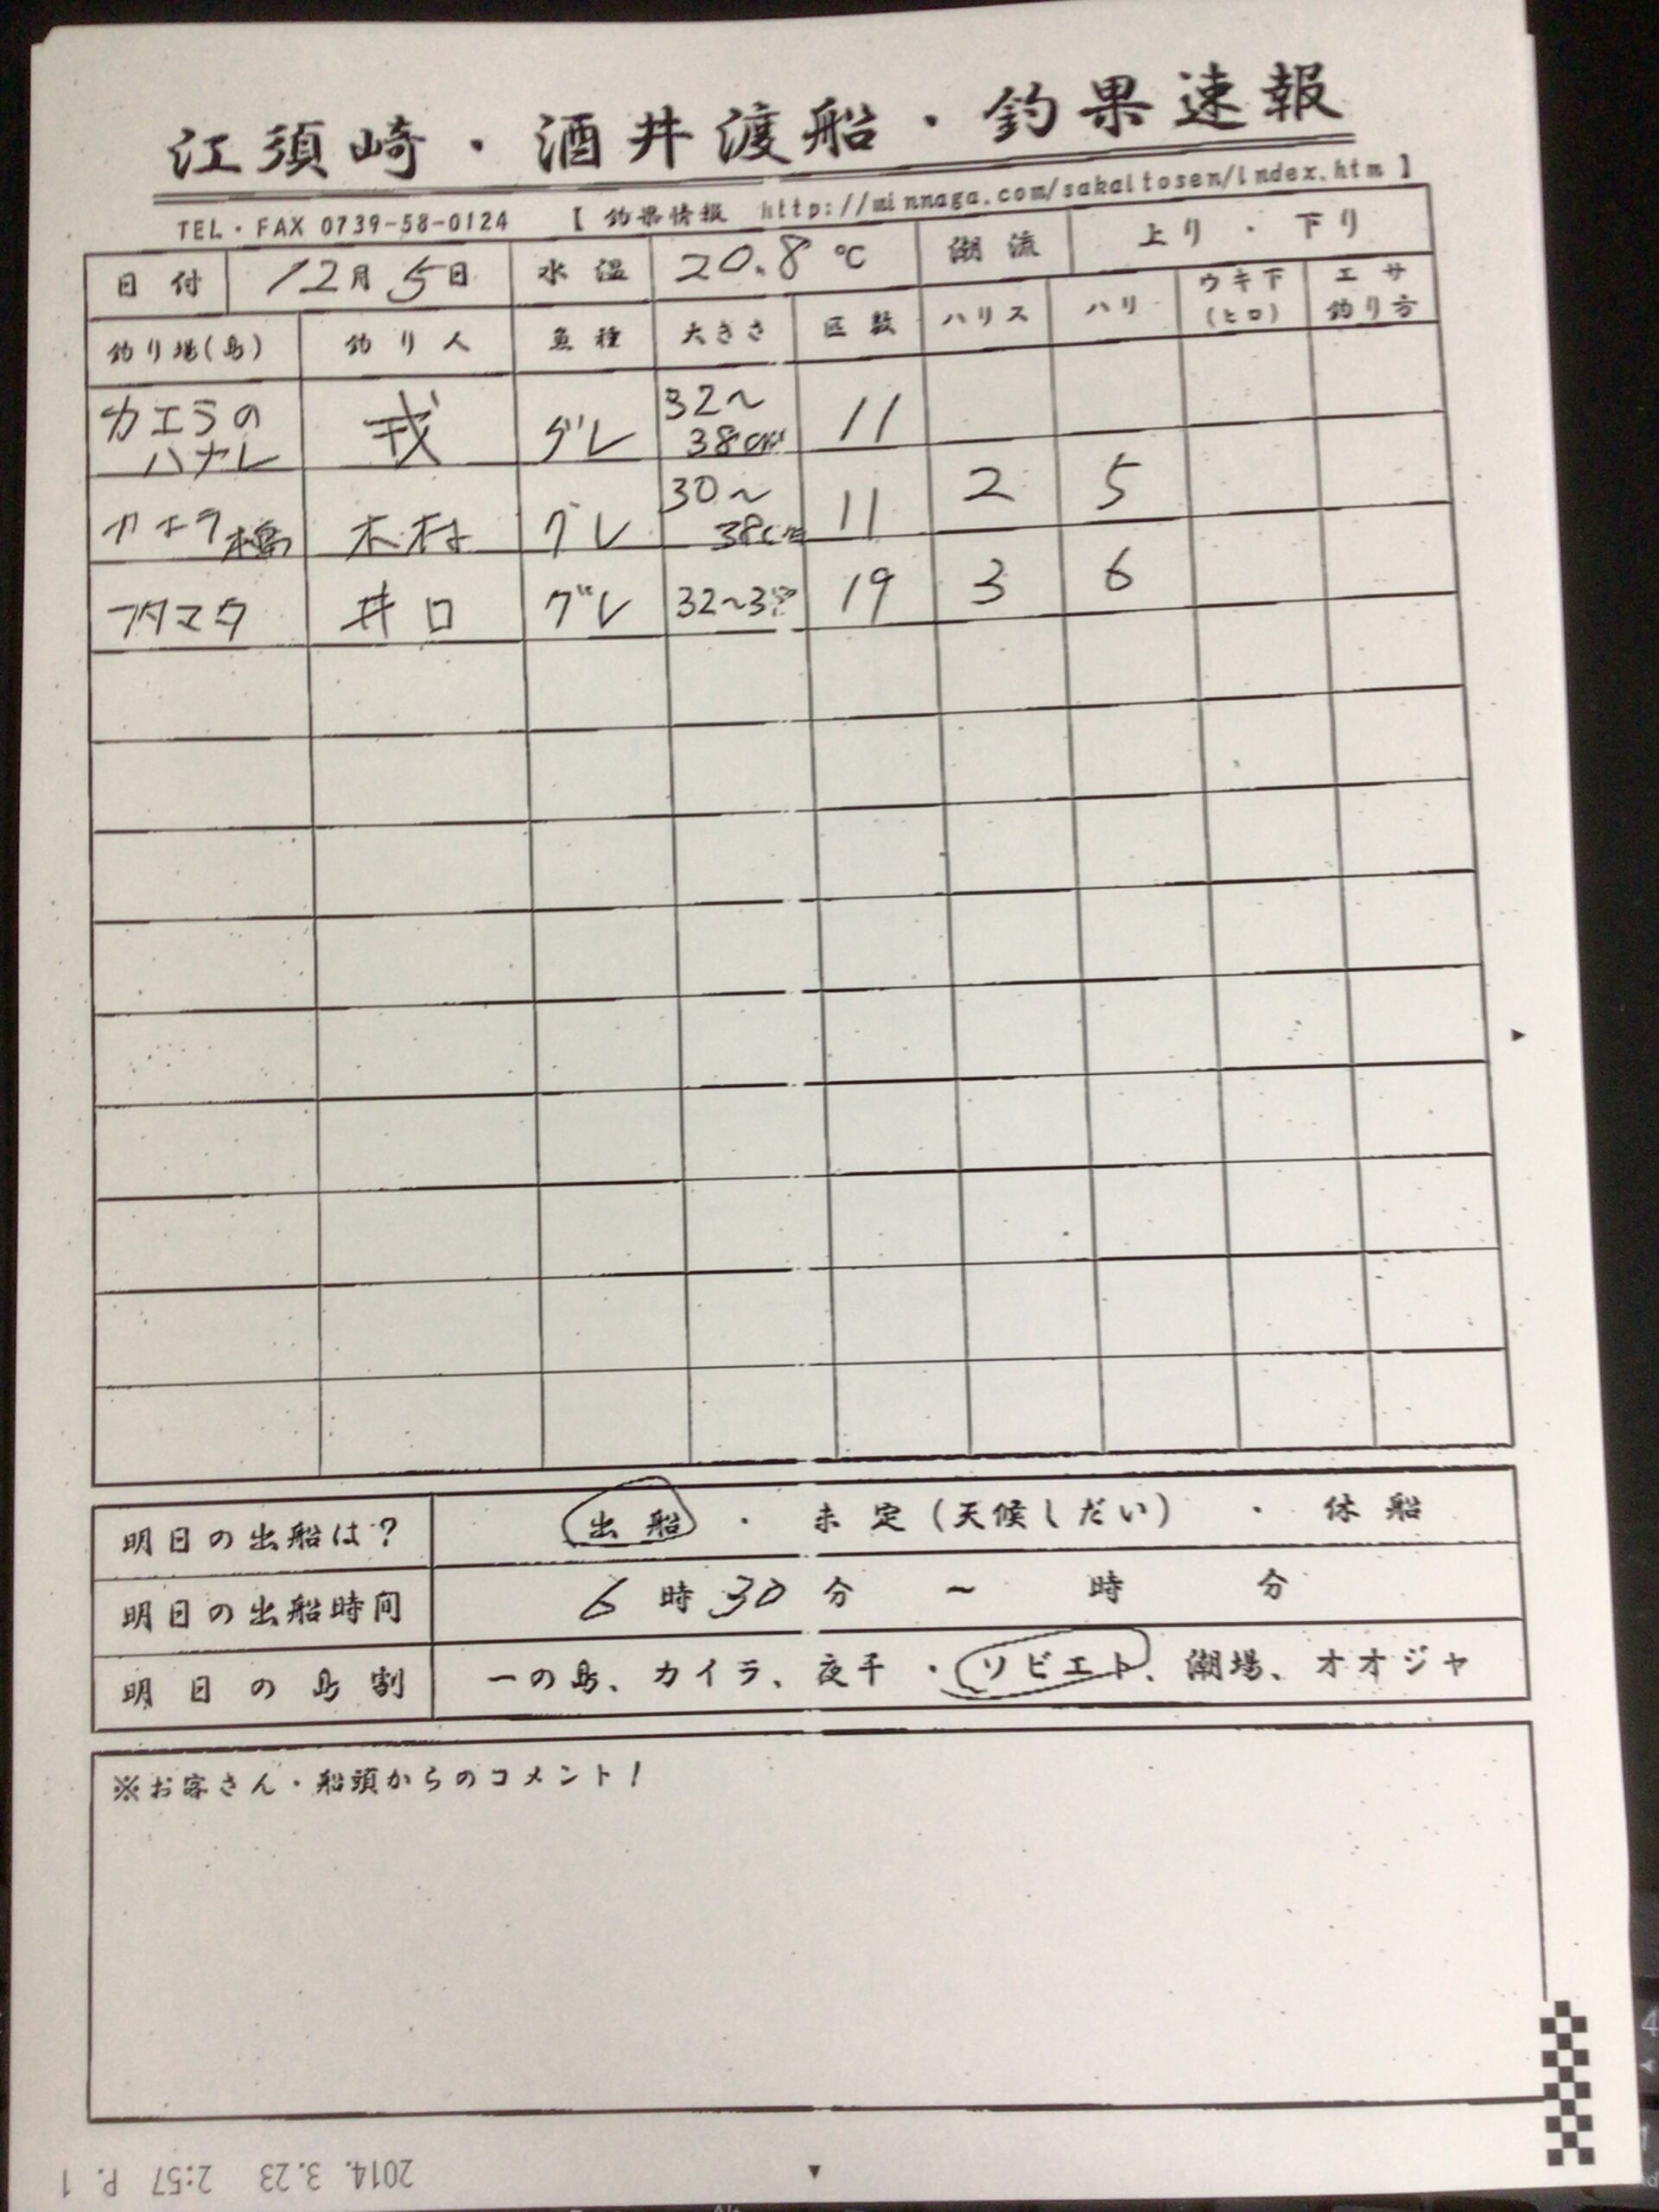 江須崎・酒井渡船・釣果速報
TEL・FAX 0739-58-0124 【 釣果情報 http://minnaga.com/sakaitosen/index.htm 】
日付 12月 5日 水温 20.8 ℃ 潮流 上り ・ 下り
釣り場(島) 釣り人 魚種 大きさ 匹数 ハリス ハリ ウキ下(ヒロ) エサ釣り方
カエラのハナレ 戎 グレ 32～38cm 11
本島 木村 グレ 30～38cm 11 2 5
フタマタ 井口 グレ 32～ 19 3 6
明日の出船は？ 出船 ・ 未定(天候しだい) ・ 休船
明日の出船時間 6 時 30 分 ～ 時 分
明日の島割 一の島、カイラ、夜干 ・ ソビエト、潮場、オオジャ
※お客さん・船頭からのコメント！
2014. 3.23 2:57 P. 1